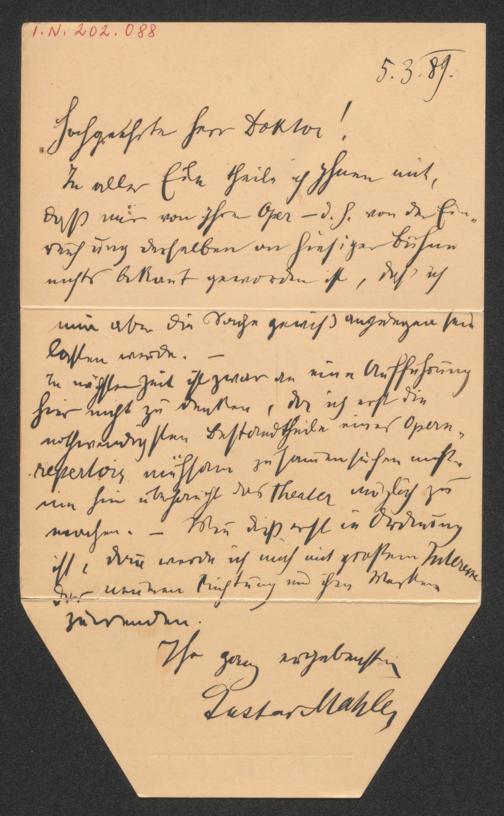 I.N. 202.088
5.3.89.
Hochgeehrter Herr Doktor!
In aller Eile theile ich Ihnen mit,
daß mir von Ihrer Oper – d.h. von der Ein-
reichung derselben an hiesiger Bühne
nichts bekannt geworden ist, daß ich
mir aber die Sache gewiß angelegen sein
lassen werde. –
In nächster Zeit ist zwar an eine Aufführung
hier nicht zu denken, da ich erst die
nothwendigsten Bestandtheile eines Opern-
repertoirs mühsam zusammensuchen muß,
um hier überhaupt das Theater möglich zu
machen. – Wenn dieß erst in Ordnung
ist, dann werde ich mich mit großem Interesse
der neueren Richtung und ihren Werken
zuwenden.
Ihr ganz ergebenster
Gustav Mahler